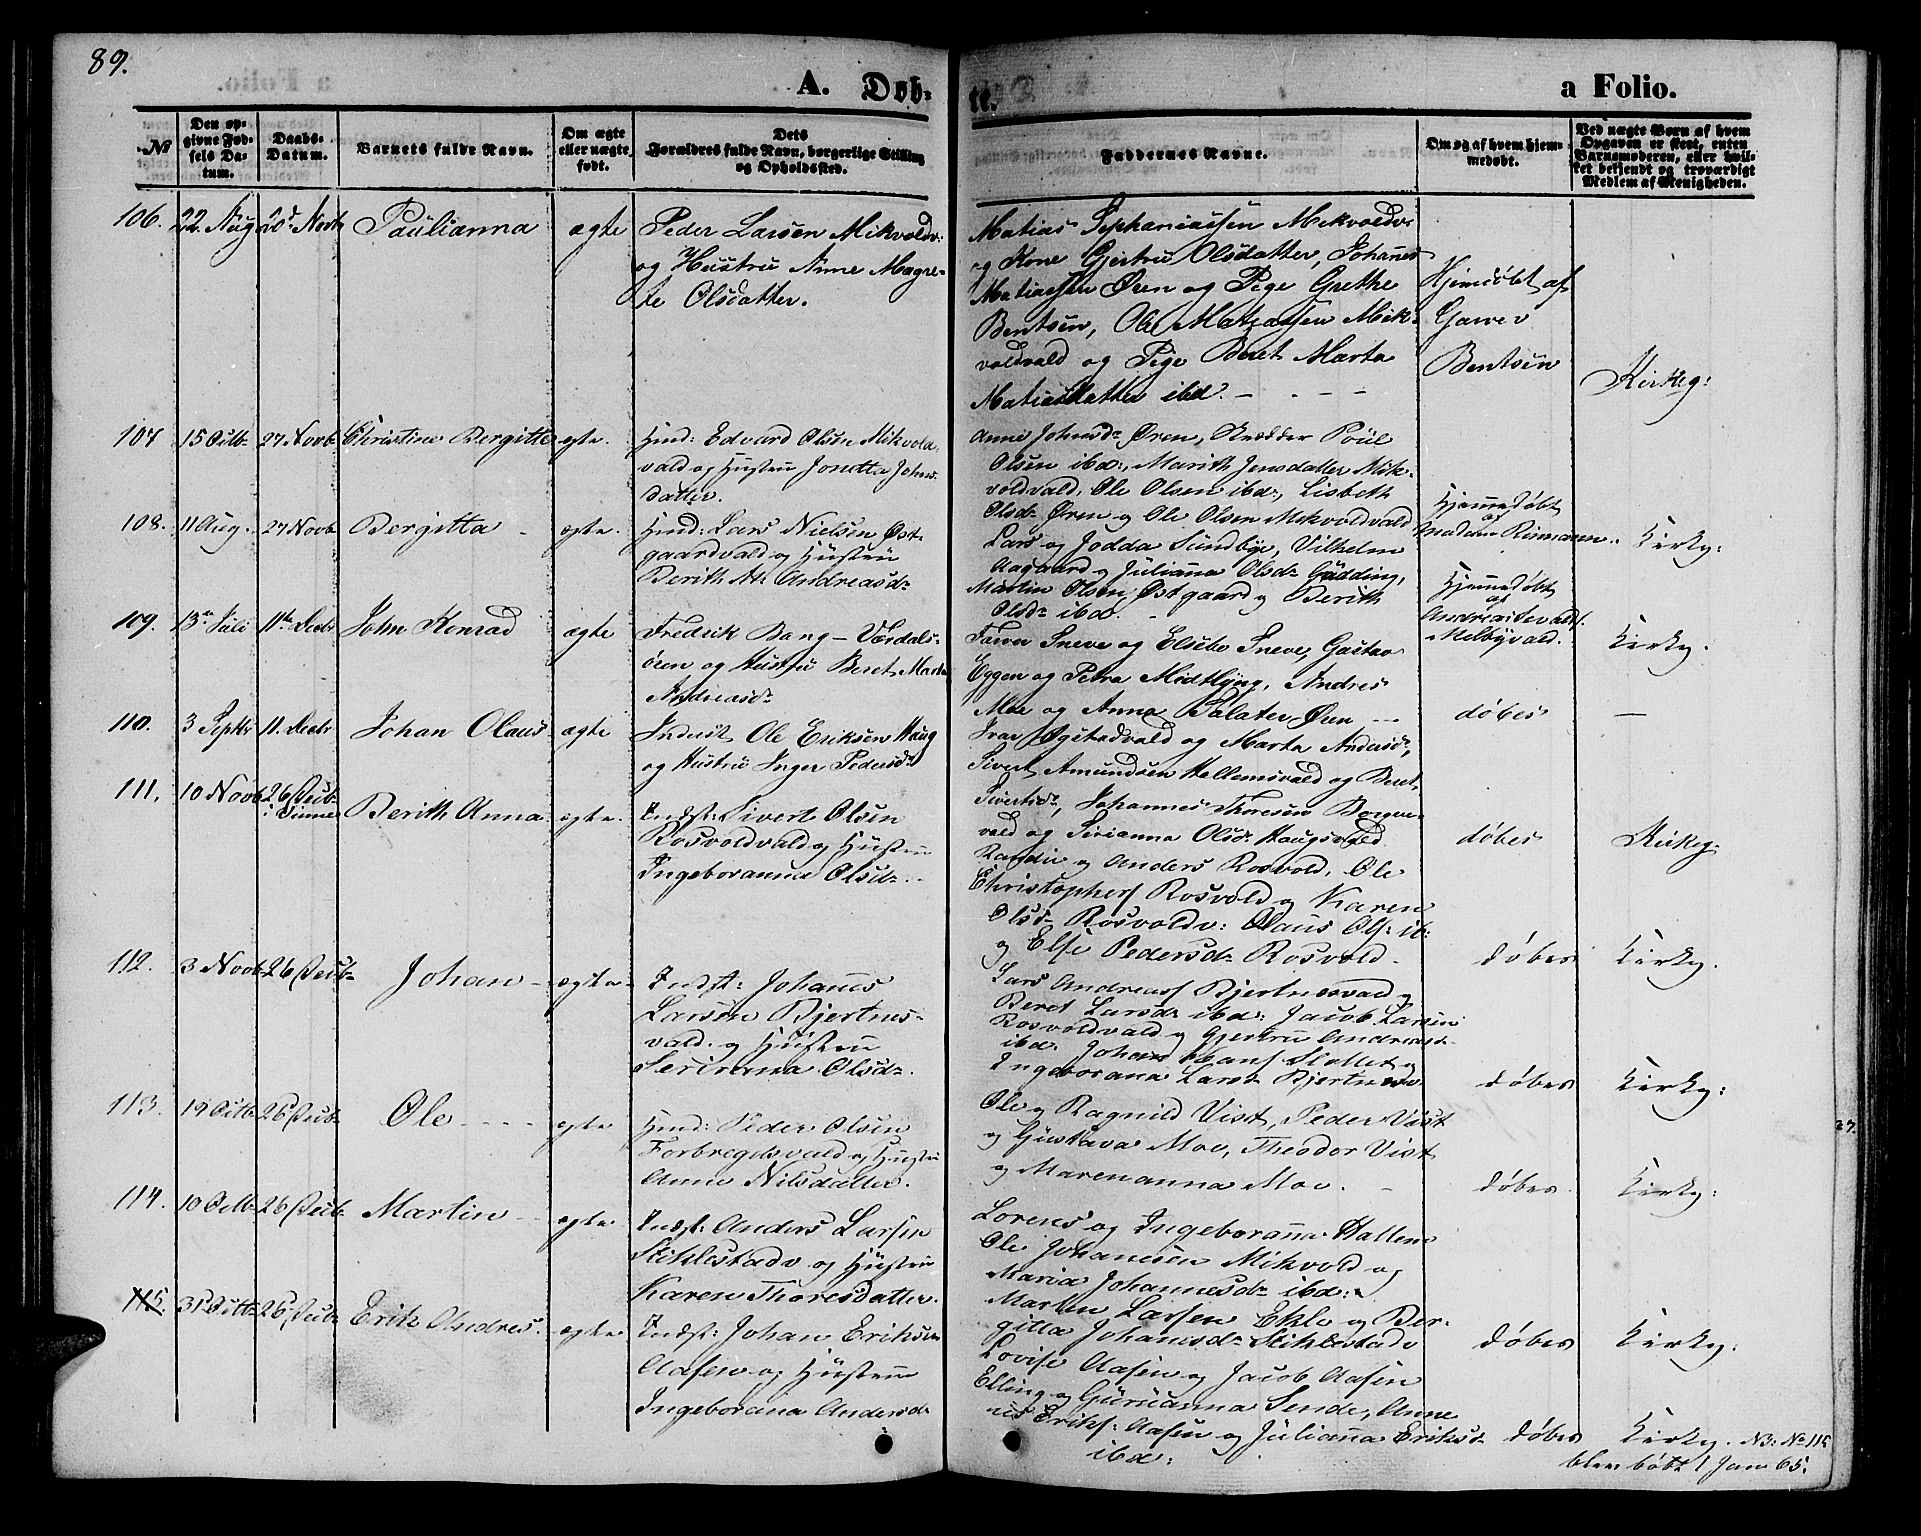 89.
A. Døb-
te.
a Folio.
№
Den op-
givne Fød-
sels Da-
tum.
Daabs-
Datum.
Barnets fulde Navn.
Om ægte
eller uægte
født.
Dets
Forældres fulde Navn, borgerlige Stilling
og Opholdssted.
Faddernes Navne.
Om og af hvem hjem-
medøbt.
Ved uægte Børn af hvem
Opgaven er skeet, enten
Barnemoderen, eller hvil-
ket bekjendt og troværdigt
Medlem af Menigheden.
106. 22. Aug 20d Novbr Paulianna ægte
Peder Larsen Mikvoldv:
og Hustru Anne Magre-
te Olsdatter.
Matias Sephaniassen Mikvoldv:
og Kone Gjertru Olsdatter, Johanes
Matiassen Øren og Pige Grethe
Bentsen, Ole Matiassen Mik-
voldvald og Pige Beret Marta
Matiasdatter ibd. - . - -
Hjemdøbt af
Bentsen
Kirkeg:
107 15 Octb 27 Novb Christine Bergitte egte.
Hmd: Edvard Olsen Mikvold-
vald og Hustru Jonetta Johns-
datter.
Anne Johnsd. Øren, Poul
Olsen ibd:, Marith Jensdatter Mik-
voldvald, Ole Olsen ibd:, Lisbeth
Olsd. Øren og Ole Olsen Mikvoldvald
108. 11 Aug. 27 Novb Bergitta - egte.
Hmd: Lars Nielsen Øst-
gaardvald og Hustru
Berith M. Andreasd.
Lars og Jodda Sundbye, Vilhelm
Aagaard og Julianna Olsd. Gudding,
Martin Olsen Østgaard og Berith
Olsd. ibd. -
Hjemmedøbt
af
Madam Rinnanen.
Kirkg:
109. 13de Juli 11te Decbr John Konrad ægte
Fredrik Bang - Værdals-
øren og Hustru Beret Marta
Andreasd.
Sneve og Elsebe Sneve, Gustav
Eggen og Petra Midtlyng, Andres
Moe og Anna Salater Øren - -
Hjemmedøbt
af
Melbyvald.
Kirkg.
110. 3 Septbr 11. Decbr Johan Olaus ægte
Inderst Ole Eriksen Haug
og Hustru Inger Pedersd.
Ivar Øgstadvald og Marta Andersd.,
Sivert Amundsen Hellemsvald og Beret
Sivertsd., Johannes Thoresen Borgen-
vald og Sirianna Olsd. Haugsvald.
døbes
-
111. 10 Novb 26 Decb. Berith Anna egte.
Indst: Sivert Olsen
Rosvoldvald og Hustru
Ingeboranna Olsd. -
Randie og Anders Rosvold, Ole
Christophers Rosvold og Karen
Olsd. Rosvoldv: Olaus Ols: ib:
og Else Pedersd. Rosvold.
døbes
Kirkeg:
112. 3 Novb. 26 Decb. Johan - egte.
Indst: Johannes
Larsen Bjertnes-
vald og Hustru
Serianna Olsd.
Lars Andreass Bjertnesvald og
Beret Larsd. ibd: Jacob Larsen
Rosvoldvald og Gjertru Andreasd.
ibd. Johan Hans Slottet og
Ingeborana Larsd. Bjertnesv.
døbes Kirkg.
113. 19 Octb. 26 Decb. Ole - - - - egte
Hmd: Peder Olsen
Forbregdsvald og Hustru
Anne Nilsdatter.
Ole og Ragnild Vist, Peder Vist
og Gustava Moe, Theodor Vist
og Marenanna Moe. -
døbes Kirkg:
114. 10 Octb. 26 Decb. Martin - - egte
Indst: Anders Larsen
Stiklestadv og Hustru
Karen Thoresdatter.
Lorens og Ingeboranna Hallem
Ole Johannesen Mikvold og
Maria Johannesd. ibd:
Marten Larsen Ekle og Ber-
gitta Johannesd. Stiklestadv
døbes. Kirkg:
115. 31 Octb. 26 Decb. Erik Andres. egte.
Indst: Johan Eriksen
Aasen og Hustru
Ingeborana Andersd.
Lovise Aasen og Jacob Aasen
Elling og Guruanna Sende, Anne
Eriks: Aasen og Julianna Eriksd.
ibd:
døbes Kirkg:
døbes Kirkg. NB: No 115
blev døbt 1 Jan 65.
27.